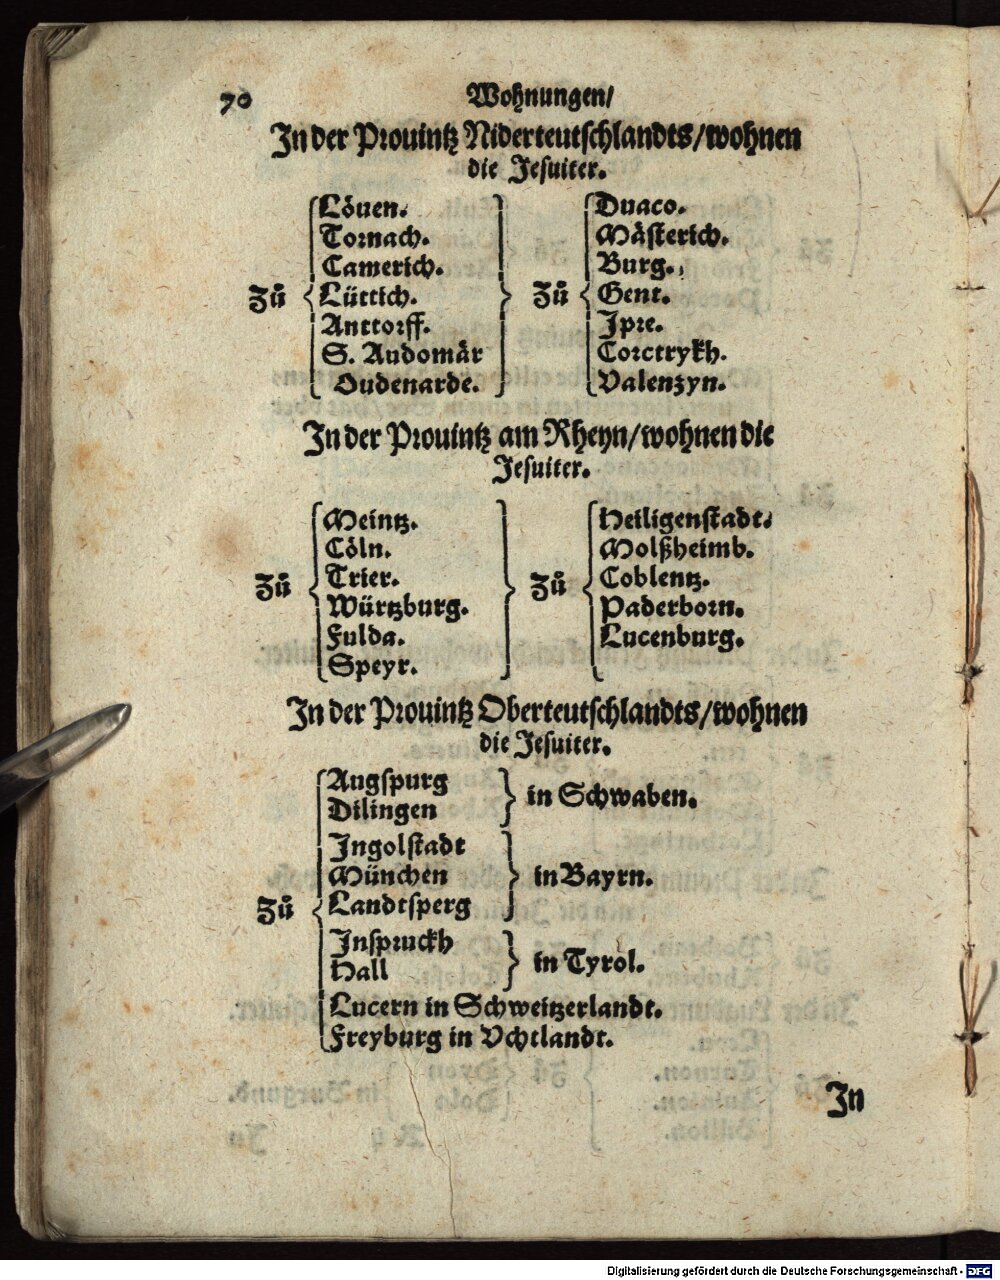 70
Wohnungen/
In der Prouintz Niderteutschlandts/wohnen
die Jesuiter.
Zů
Löuen.
Tornach.
Camerich.
Lüttich.
Anttorff.
S. Audomär
Oudenarde.
Zů
Duaco.
Mästerich.
Burg.
Gent.
Jpre.
Corctrykh.
Valenzyn.
In der Prouintz am Rheyn/wohnen die
Jesuiter.
Zů
Meintz.
Cöln.
Trier.
Würtzburg.
Fulda.
Speyr.
Zů
Heiligenstadt.
Molßheimb.
Coblentz.
Paderborn.
Lucenburg.
In der Prouintz Oberteutschlandts/wohnen
die Jesuiter.
Zů
Augspurg
Dilingen
in Schwaben.
Ingolstadt
München
Landtsperg
in Bayrn.
Inspruckh
Hall
in Tyrol.
Lucern in Schweitzerlandt.
Freyburg in Vchtlandt.
In
Digitalisierung gefördert durch die Deutsche Forschungsgemeinschaft - DFG